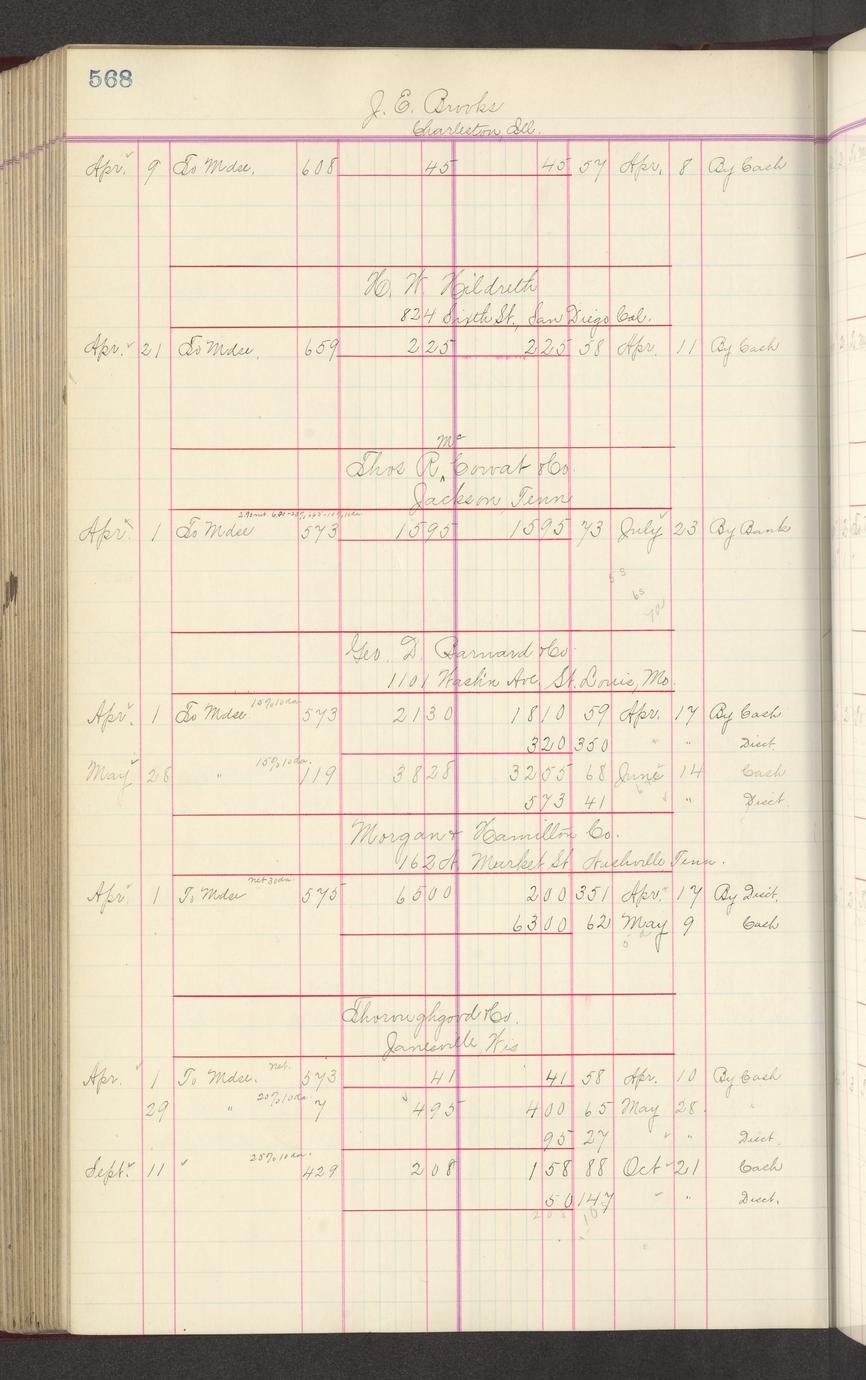 568
J. E. Brooks
Charleston, Ill.
Apr. 9 To Mdse. 608 45 45 57 Apr. 8 By Cash
H. W. Hildreth
824 Sixth St., San Diego Cal.
Apr. 21 To Mdse. 659 225 225 58 Apr. 11 By Cash
Mc
Thos R. ^ Cowat & Co.
Jackson, Tenn
Apr. 1 To Mdse 573 1595 1595 73 July 23 By Bank
Geo. D. Barnard & Co.
1101 Wash'n Ave. St. Louis, Mo.
15% 10 da
Apr. 1 To Mdse 573 2130 1810 59 Apr. 17 By Cash
320 350 " " Disct.
15% 10 da.
May 28 " 119 3828 3255 68 June 14 Cash
573 41 " " Disct.
Morgan & Hamilton Co.
162 N. Market St Nashville Tenn.
net 30 da
Apr. 1 To Mdse 575 6500 200 351 Apr. 17 By Disct.
6300 62 May 9 Cash
Thoroughgood & Co.
Janesville, Wis
net.
Apr. 1 To Mdse. 573 41 41 58 Apr. 10 By Cash
20% 10 da.
29 " 7 495 400 65 May 28. "
95 27 " " Disct.
25% 10 da.
Sept. 11 " 429 208 158 88 Oct 21 Cash
50 147 " " Disct.